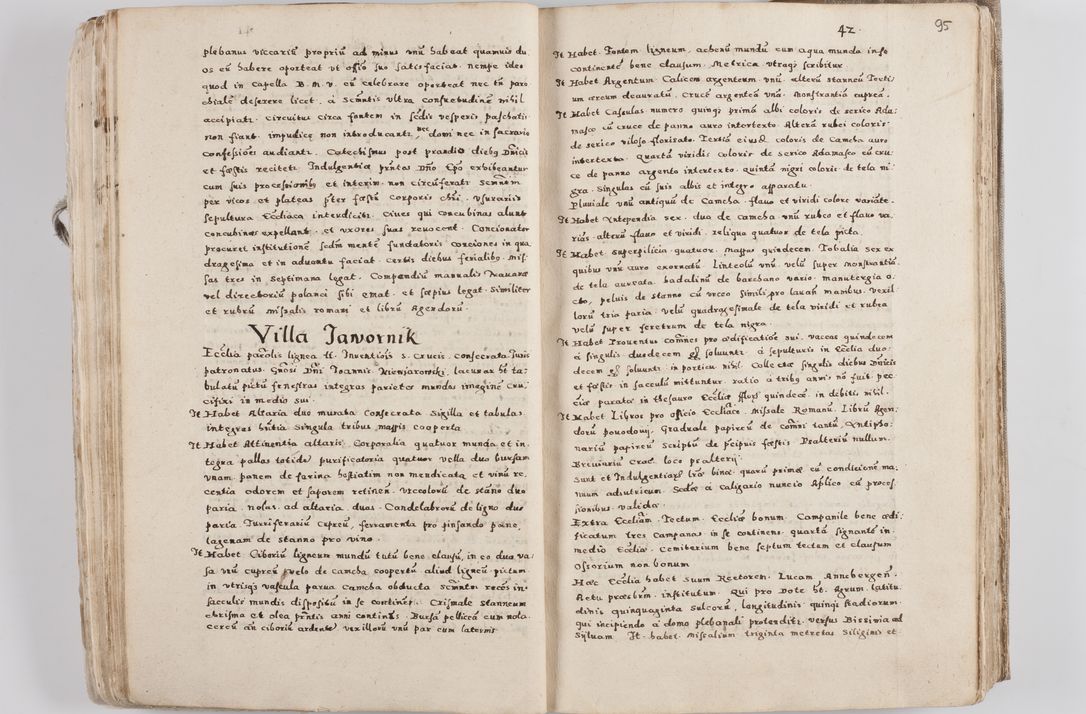 plebanus viccariũ propriũ ad minus vnũ habeat quamuis du
os eũ habere oporteat vt offio suo satisfaciat. nempe ideo
quod in capella B. M. V. eũ celebrare oporteat nec tñ paro
chialẽ deserere licet. a scmntis vltra consuetudinẽ nihil
accipiati. circuitus circa fontem in sedis vesperis paschati
non fiant. impudicę non introducanti, nec domi nec in sacrario
confessiões audianti. Catechismus post prandiũ diebq Dnicis
et fæstis reciteti. Indulgentiæ pntes Dño Epo exhibeantur
cum suis processionibq et interim non circũferatı Scmñtm
per vicos et plateas pter fæstũ corporis chri. vsurariis
sepultura Ecclīaca interdiciti. Ciues qui concubinas alunt
concubinas expellant. et vxores suas reuocent. Concionator
procuret institutionẽ sedm mentẽ fundatoris conciones in qua
dragesima et in aduentu faciat. certis diebus ferialibq mis
sas tres in septimana legat. Compendiũ manualis Nauarra
vel directoriũ polanci sibi emat. et sæpius legat. Similiter
et rubrũ missalis romani et librũ Agendorũ.
Villa Jawornik
Ecclīa parōlis lignea tt. Inuentiõis S. Crucis. consecrata. Iuris
patronatus. Gñosi Dñi Joannis Wiensiarowskj. lacunar ht ta:
bulatũ pictũ fenestras integras parietes mundas imaginẽ Cru:
cifixi in medio sui.
It Habet Altaria duo murata Consecrata Sigilla et tabulas
integres hñtia singula tribus mappis cooperta
It Habet Attinentia altaris. Corporalia quatuor munda et in:
tegra pallas totidẽ purificatoria quatuor vella duo bursam
vnam. panem de farina hostiatim non mendicata et vinũ re
centia odorem et saporem retinen. vrceolorũ de stãno duo
paria. nolas ad altaria. duas. Candelabrorũ de ligno duo
paria. Turriferariũ cupreũ, ferramenta pro pinsando pane,
lagenam de stanno pro vino.
It Habet Ciboriũ ligneum mundũ tutũ bene clausũ, in eo duo va:
sa vnũ cupreũ velo de camcha coopertũ aliud ligneũ pictum
in vtrisqȝ vascula parua camcha obducta scmñtm recẽs in:
sacculis mundis dispositũ in se continẽt. Crismale stanneum
chrisma et olea pñtis anni continẽs. Bursã pelliceã cum nola.
cereũ añ ciboriũ ardentẽ vexillorũ vnũ par cum laternis
42. 95
It Habet. Fontem ligneum, achenũ mundũ cum aqua munda in se
continentẽ bene clausum. Metrica vtraqȝ scribitur
It Habet Argentum Calicem argenteum vnũ. alterũ stanneũ Tecti
um æreum deauratũ. Crucẽ argenteã vnã. Monstrantiã cupreã.
It Habet Casulas numero quinqȝ primã albi coloris de serico Ada:
masco cũ cruce de panno auro intertexto. Alterã rubei coloris
de serico viloso florisato. Tertiã eiusdẽ coloris de Camcha auro
intertexta. Quartã viridis coloris de serico Adamasco cũ cru:
ce de panno argento intertexto. quintã nigri coloris de tela ni
gra. Singulas cũ suis albis et integro apparatu.
Pluuiale vnũ antiquũ de Camcha. flauo et viridi colore variate.
It Habet Antependia sex. duo de camcha vnũ rubeo et flauo va.
riã. alterũ flauo et viridi. reliqua quatuor de tela picta.
It Habet Superpilicia quatuor. Mappas quindecem. Tobalia sex ex
quibus vnũ auro exornatũ. Linteolũ vnũ. velũ super monstrantiã
de tela aureata. badalinũ de barchano vario. manutergia o.
cto, peluis de stanno cũ vrceo simili pro lauañ manibus. vexil
lorũ tria paria. velũ quadragesimale de tela viridi et rubea
velũ super feretrum de tela nigra.
It Habet Prouentus cõmnes pro ædificatiõe sui. vaccas quindecem
à singulis duodecem gs soluuntr. à sepulturis in Ecclīa duo:
decem gs soluunti. in porticu nihil. Collectæ singulis diebus Dnicis
et fæstis in sacculũ mittuntur. ratio à tribq annis nõ fuit. pec
ciæ paratæ in thesauro Ecclīæ flors quindecẽ. in debitis nihil.
It Habet Libros pro officio Ecclīaco. Missale Romanũ. Librũ Agen:
dorũ pouodowij, Graduale papireũ de cõmni tantũ, Antipho:
nariũ papireũ scriptũ de pcipuis fæstis Psalteriũ nullum.
Breuiariũ Crac. loco psalterij
Sunt et Indulgentiarũ lræ binæ quarũ primæ cũ condicione ma:
nuum adiutricum. Scdæ à Caligario nuncio Aplico cũ proces:
sionibus. validæ.
Extra Eccliam. Tectum Ecclīæ bonum. Campanile bene ædi:
ficatum tres campanas in se continens. quartã signantẽ in.
medio Ecclīæ. Cemiterium bene septum tectum et clausum
Ossorium non bonum
Hæc Ecclīa habet suum Rectorem. Lucam Annebergeñ.
Actu præsbrm. institutum. Qui pro Dote ht. Agrum. latitu.
dinis quinquaginta sulcorũ, longitudinis quinqȝ stadiorum.
qui incipiendo à domo plebanali protenditr. versus Bissinia ad
syluam. It. habet. Missalium triginta metretas siliginis et